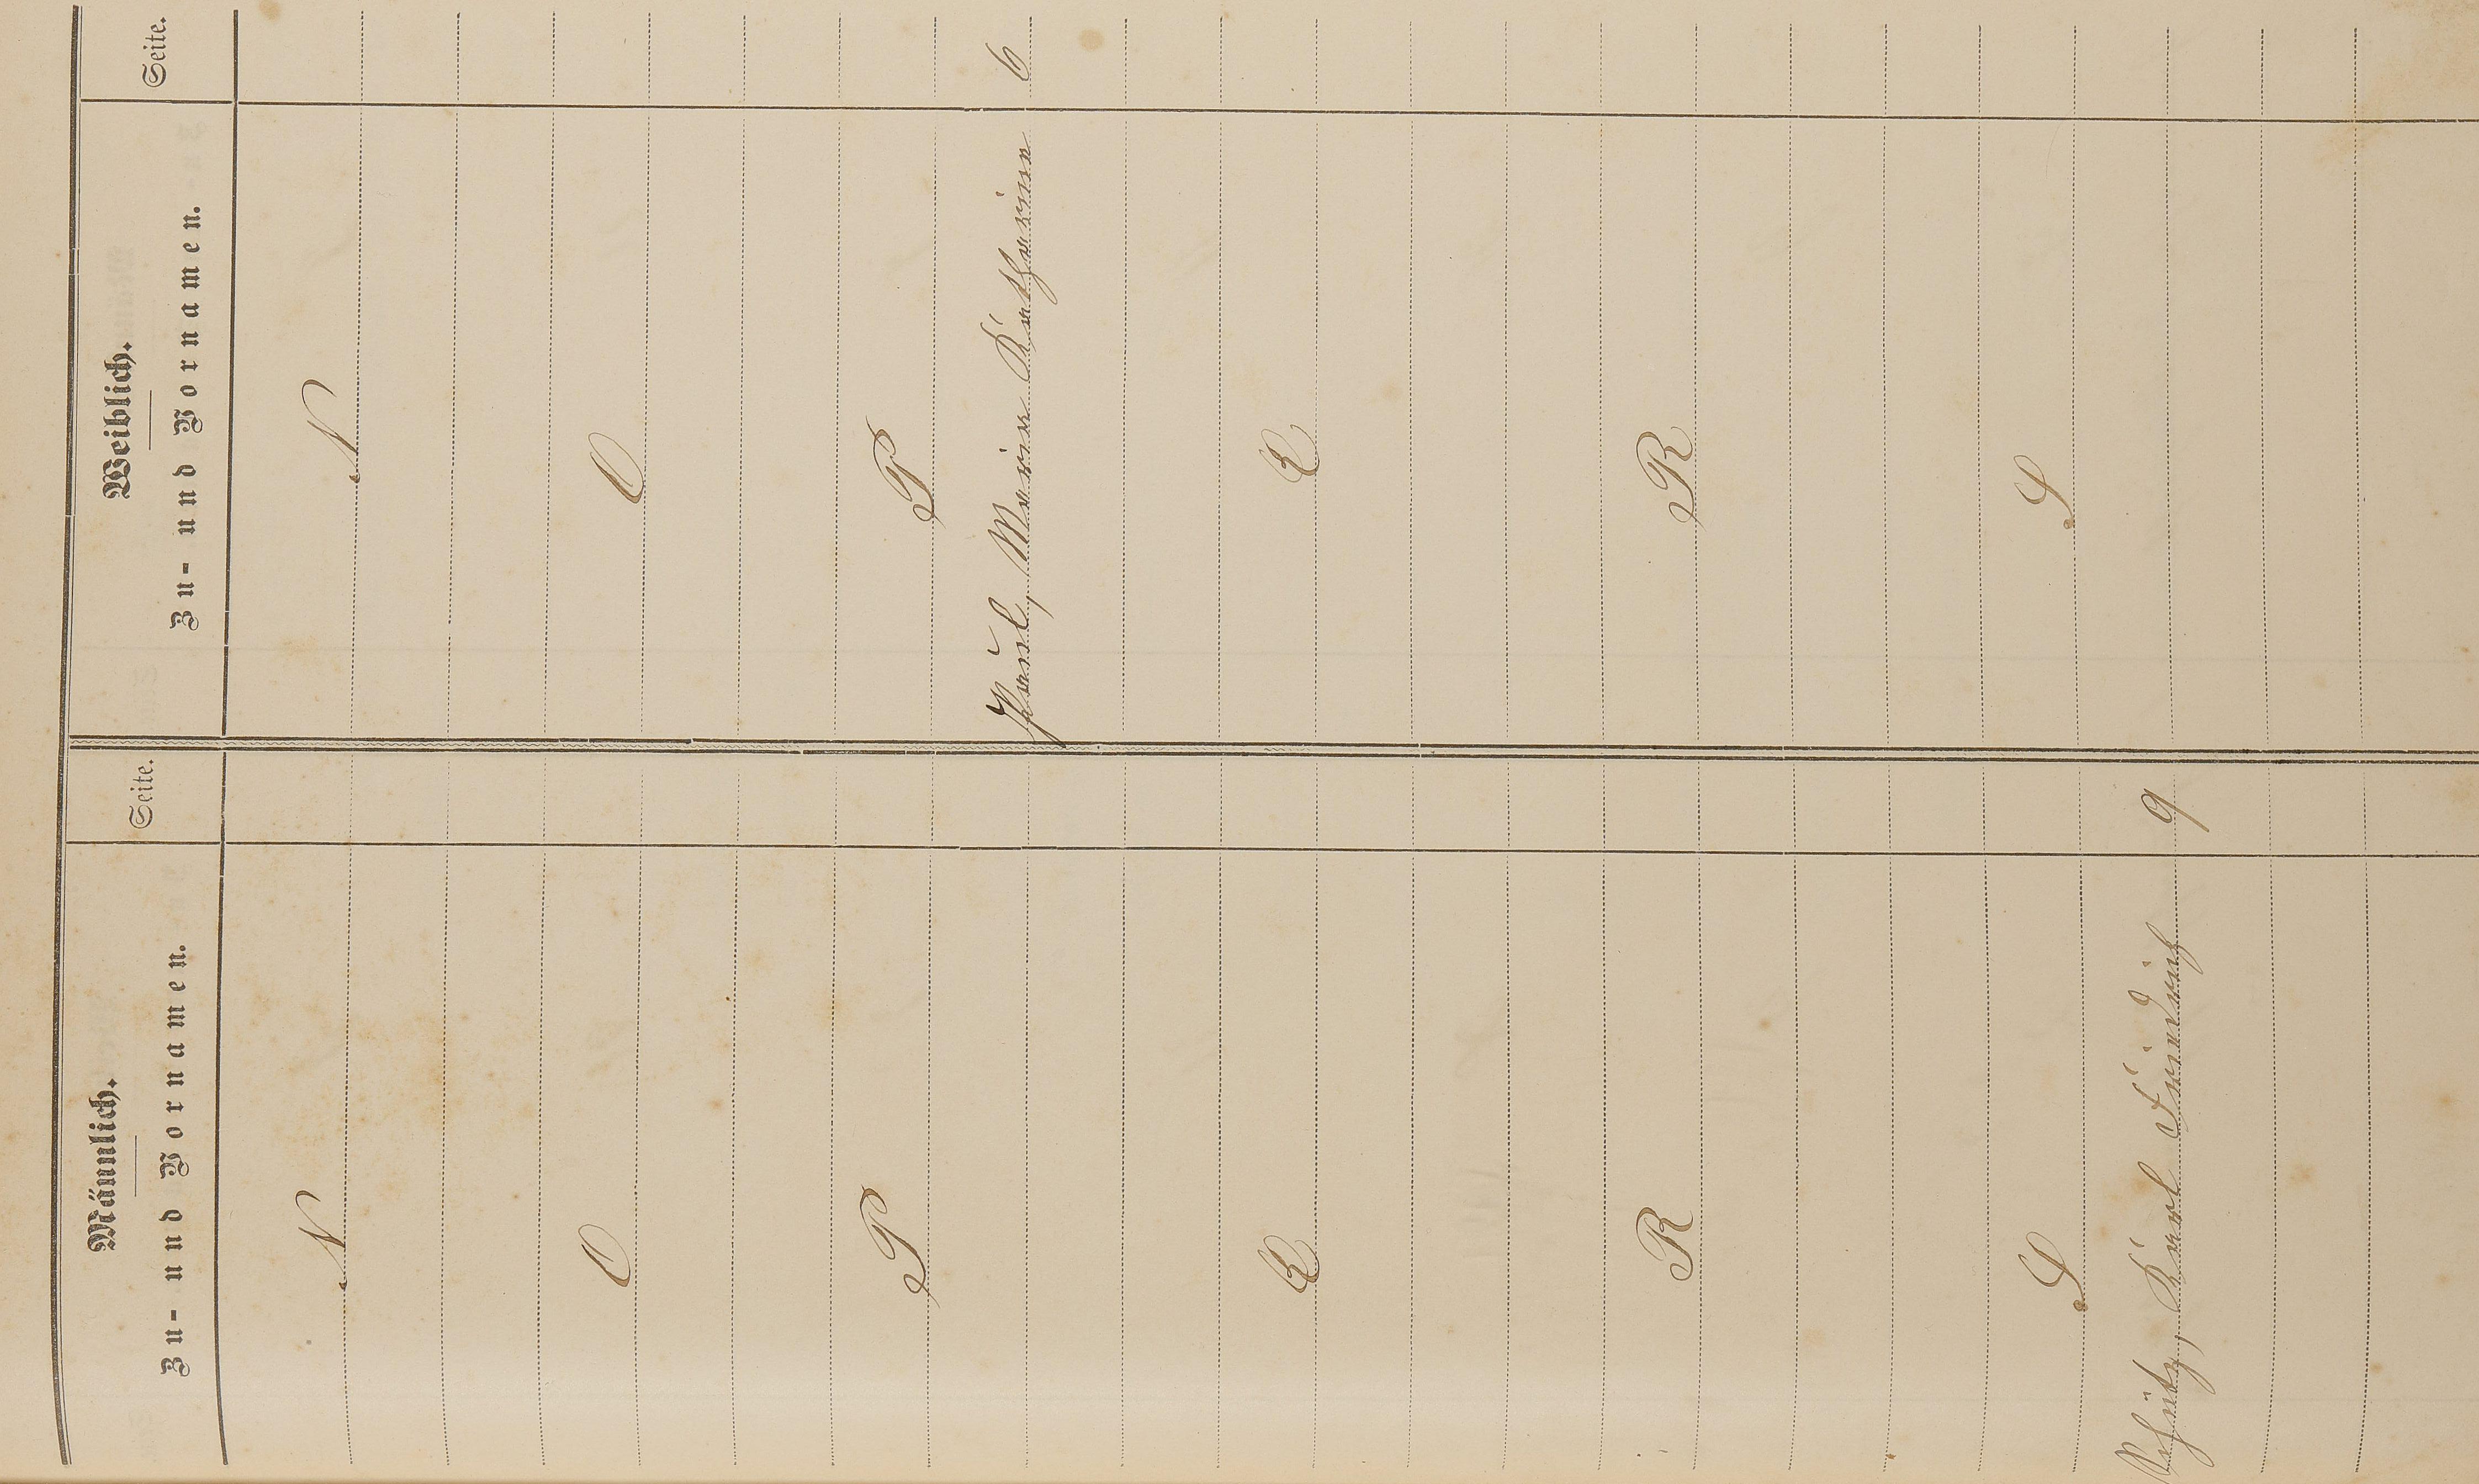 Männlich.
Zu- und Vornamen.
Seite.
Weiblich.
Zu- und Vornamen.
Seite.
N
N
O
O
P
P
Paul, Maria Katharina 6
Q
Q
R
R
S
S
Schütz, Karl Friedrich 9